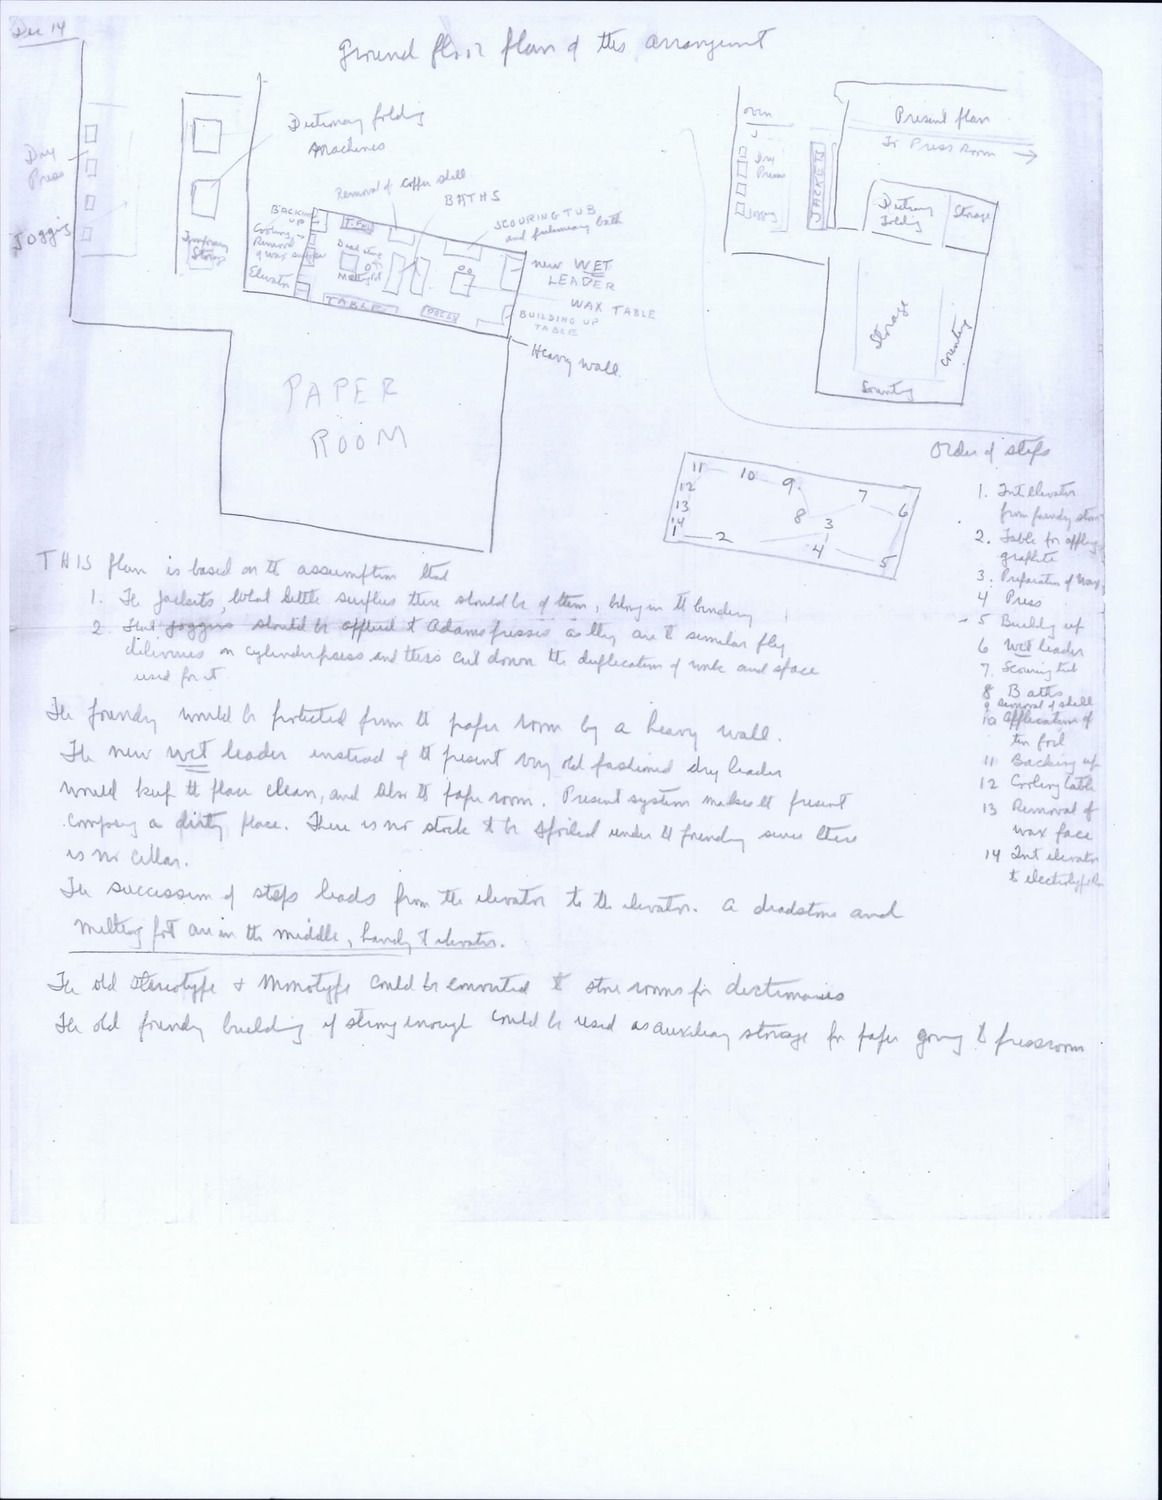 Dec 14
Ground floor plan of this arrangement
Dictionary folding
Machines
Dry
Press
Joggers
Temporary
Storage
Removal of Copper shell
BATHS
BACKING
UP
Cooling
Removal
of wax surface
Elevator
T. FOIL
SCOURING TUB
and preliminary bath
new WET
LEADER
WAX TABLE
BUILDING UP
TABLE
TABLE
PRESS
Heavy wall
PAPER
ROOM
Oven
Dry
Presses
Joggers
JACKETS
Present plan
To Press Room →
Dictionary
folding
Storage
Storage
Counting
Counting
11 10 9 7 6
12
13 8 3
14
1 2 4 5
Order of steps
1. Int elevator
from foundry
2. Table for
graphite
3. Preparation of Wax
4 Press
5 Building up
6 Wet leader
7. Scouring tub
8 Baths
9 Removal of shell
10 Application of
tin foil
11 Backing up
12 Cooling table
13 Removal of
wax face
14 Int elevator
to
THIS plan is based on the assumption that
1. The jackets, what little surplus there should be of them, belong in the bindery
2. That joggers should be applied to Adams presses as they are to similar fly
deliveries on cylinder presses and thus cut down the duplication of work and space
used for it.
The foundry would be protected from the paper room by a heavy wall.
The new wet leader instead of the present very old fashioned dry leader
would keep the place clean, and also the paper room. Present system makes the present
a dirty place. There is no stock to be spoiled under the foundry since there
is no cellar.
The succession of steps leads from the elevator to the elevator. A deadstone and
melting pot are in the middle, handy to elevator.
The old Stereotype & Monotype could be converted to store rooms for dictionaries
The old foundry building if strong enough could be used as auxiliary storage for paper going to pressroom